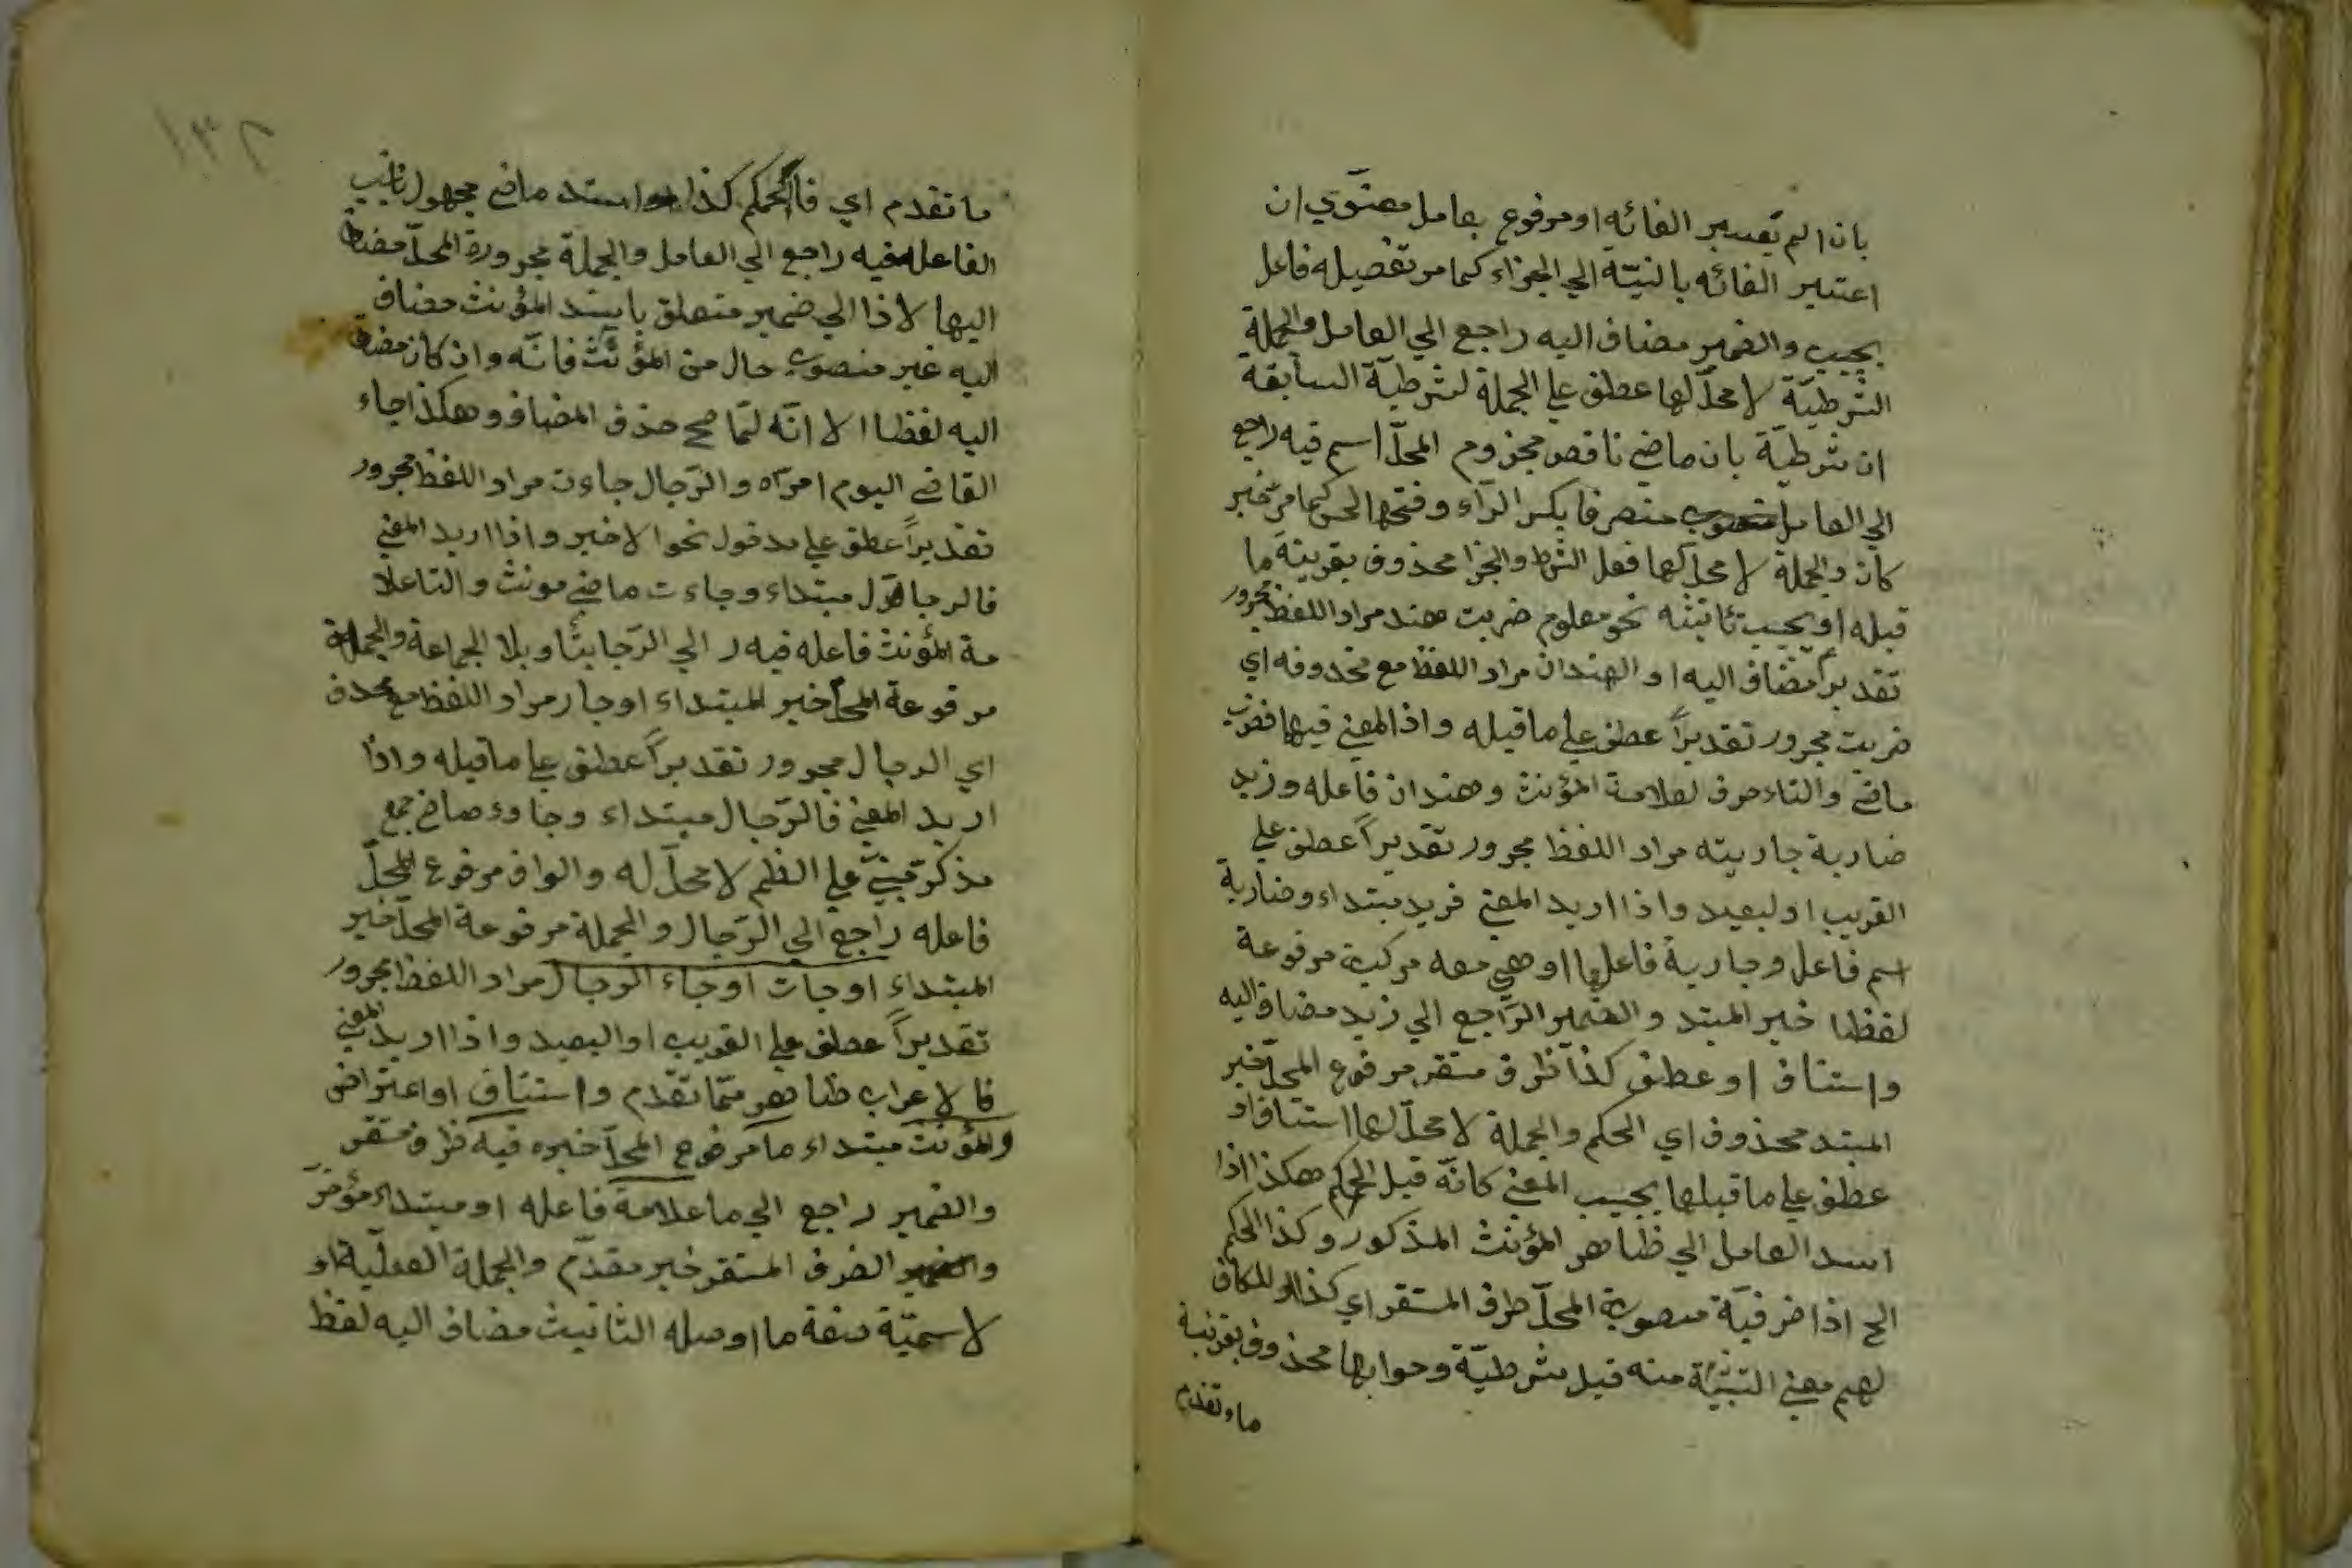 بان لم يعتبر الفائه او مرفوع بعامل معنوي ان
اعتبر الفائه بالنيّة الي الجزاء كما مر تفصيله فاعل
يجيب والضمير مضاف اليه راجع الي العامل والجملة
الشرطيّة لا محلّ لها عطف علي الجملة لشرطيّة السابقة
ان شرطيّة بان ماضي ناقص مجزوم المحلّ اسم فيه راجع
الي العامل منصرفا بكسر الرّاء وفتحها كما مرّ خبر
كان والجملة لا محل لها فعل الشرط والجزا محذوف بقرينة ما
قبله او يجب تانيثه نحو معلوم ضربت هند مراد اللفظ مجرور
تقديراً مضاف اليه او الهندان مراد اللفظ مع محذوفه اي
ضربت مجرور تقديراً عطف علي ما قبله واذا المعني فيها فضربت
ماضي والتاء حرف لعلامة المؤنث وهندان فاعله وزيد
ضاربة جاريته مراد اللفظ مجرور تقديراً عطف علي
القريب او لبعيد واذا اريد المعني فزيد مبتداء وضاربة
اسم فاعل وجارية فاعلها او هي معه مركبة مرفوعة
لفظا خبر المبتد والضمير الرّاجع الي زيد مضاف اليه
واستناف او عطف كذا ظرف مستقر مرفوع المحلّ خبر
المبتد محذوف اي الحكم والجملة لا محلّ لها استناف او
عطف علي ما قبلها بحسب المعني كانّه قيل الحكم هكذا اذا
اسد العامل الي ظاهر المؤنث المذكور وكذا الحكم
الخ اذا ضرفيّة منصوبة المحلّ ظرف المستقر اي كذا او للكاف
لهم معني التشبيه منه قيل شرطيّة وجوابها محذوف بقرينة
ما تقدم
١٣٢
ما تقدم اي فالحكم كذا اسند ماضي مجهول نائب
الفاعل فيه راجع الي العامل والجملة مجرورة المحلّ مضاف
اليها لاذا الي ضمير متعلق باسند المؤنث مضاف
اليه غير منصوب حال من المؤنّث فانّه وان كان مضاف
اليه لفظا الا انّه لمّا صح حذف المضاف وهكذا جاء
القاضي اليوم امرأه والرّجال جاءت مراد اللفظ مجرور
تقديراً عطف علي مدخول نحوا لاخير واذا اريد المعني
فالرجال مبتداء وجاءت ماضي مونث والتا علا
مة المؤنث فاعله فيه ر الي الرّجا بتأويل الجماعة والجملة
مرفوعة المحلّ خبر المبتداء او جاز مراد اللفظ مع محذف
اي الرجال مجرور تقديراً عطف علي ما قبله واذا
اريد المعني فالرّجال مبتداء وجاوء ماضي جمع
مذكر مبني علي الظم لا محلّ له والواو مرفوع المحلّ
فاعله راجع الي الرّجال والجملة مرفوعة المحلّ خبر
المبتداء او جات او جاء الرجال مراد اللفظ مجرور
تقديراً عطف علي القريب او البعيد واذا اريد المعني
فا لاعراب ظاهر ممّا تقدّم واستناف او اعتراض
والمؤنث مبتداء ما مرفوع المحلّ خبره فيه ظرف مستقر
والضمير راجع الي ما علامة فاعله او مبتداء مؤخرّ
والضرف المستقر خبر مقدّم والجملة الفعليّة او
لاسميّة صفة ما او صله التانيث مضاف اليه لفظ